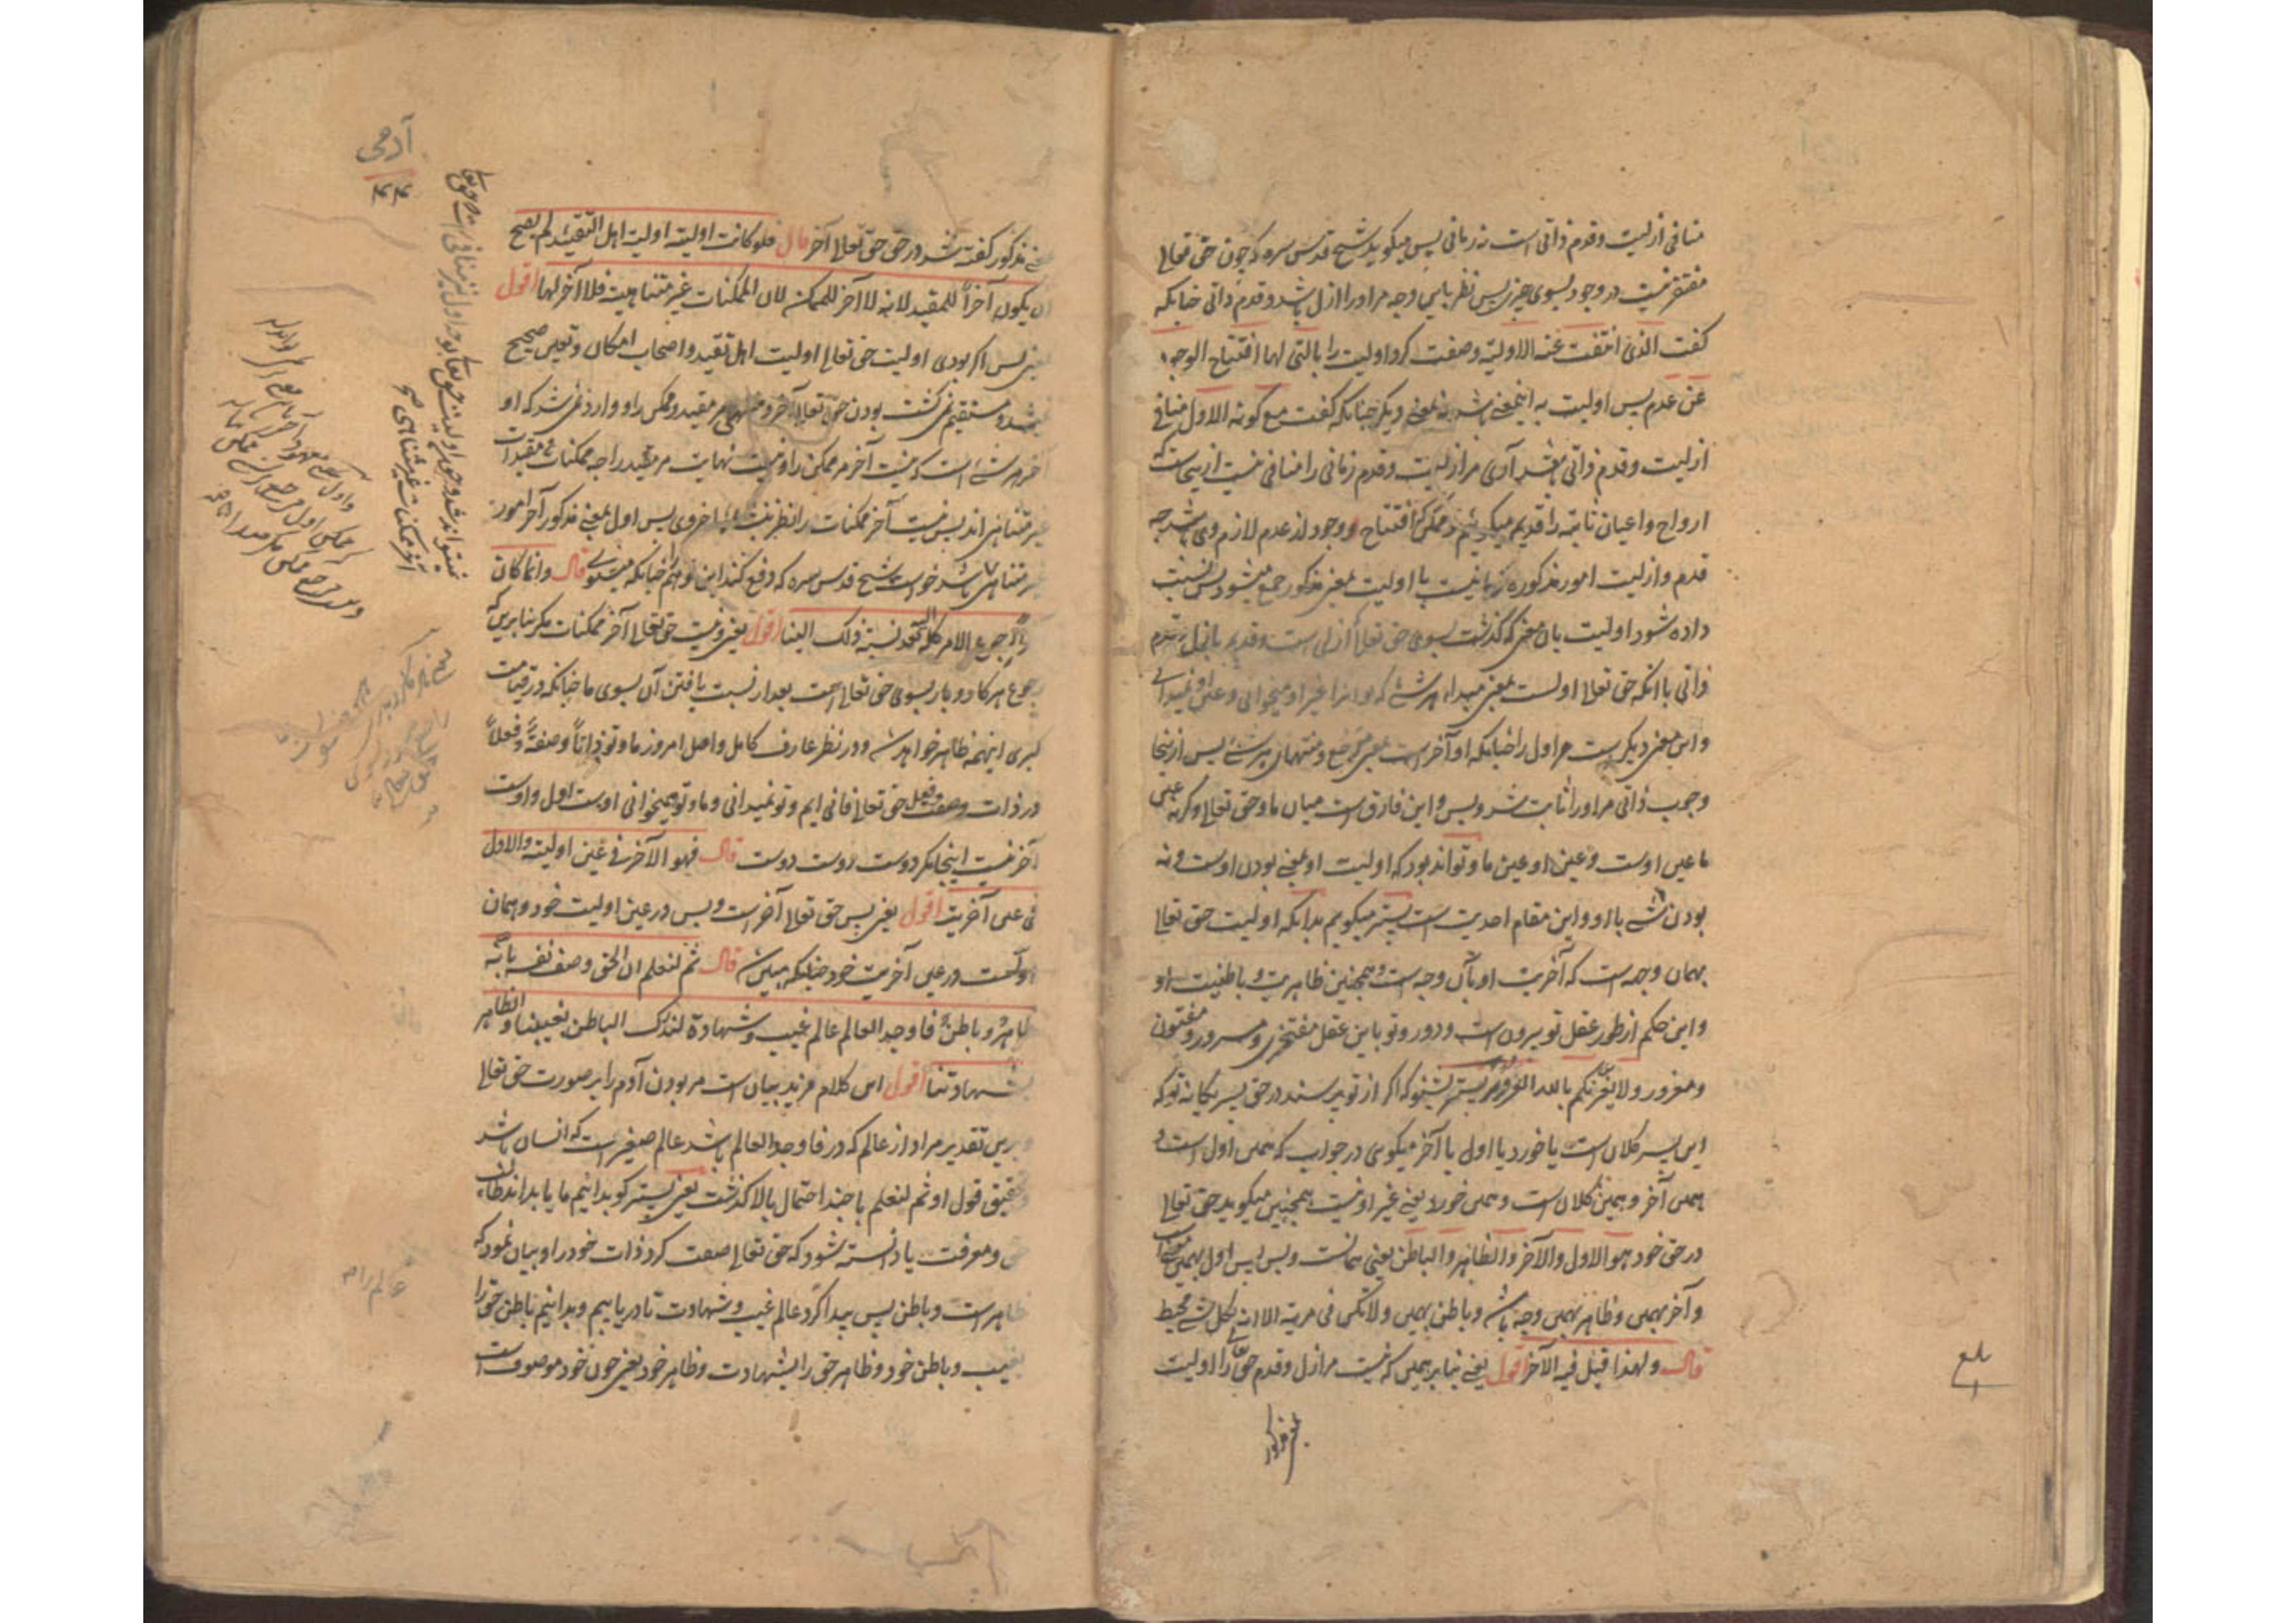 منافی ازلیت و قدم ذاتی است نه زمانی پس میکوید شیخ قدس سره که چون حق تعالی
مفتقر نیست در وجود بسوی چیزی پس نظر باین وجه مر او را ازل باشد و قدم ذاتی چنانکه
کفت الذی انتفت عنه الاولیة وصفت کرد اولیت را بالتی لها افتتاح الوجود
عن عدم پس اولیت به اینمعنی باشد نه بمعنی دیکر چنانکه کفت مع کونه الاول منافی
ازلیت و قدم ذاتی باشد آری مر ازلیت و قدم زمانی را منافی نیست ازینجاست که
ارواح و اعیان ثابته را قدیم میکوئیم ممکن که افتتاح وجود از عدم لازم وی باشد چه
قدم و ازلیت امور مذکوره زمانیست با اولیت بمعنی مذکور جمع میشود پس نسبت
داده شود اولیت بآن معنی که کذشت بسوی حق تعالی ازلی است و قدیم بازل و قدم
ذاتی با آنکه حق تعالی اولست بمعنی مبداء هر شئ که تو آنرا غیر او میخوانی و عین او نمیدانی
و این معنی دیکر است مر اول را چنانکه او آخر است بمعنی مرجع و منتهای هر شئ پس ازینجا
وجوب ذاتی مر او را ثابت شد و بس و این فارق است میان ما و حق تعالی و کرنه عین
ما عین اوست و عین او عین ما و تواند بود که اولیت او بمعنی بودن اوست و نه
بودن شئ با او و این مقام احدیت است پستر میکویم بدانکه اولیت حق تعالی
بهمان وجه است که آخریت او بآن وجه است و همچنین ظاهریت و باطنیت او
و این حکم از طور عقل تو بیرون است و دور و تو باین عقل مفتخری و مسرور و مفتون
و مغرور ولا یغرنکم بالله الغرور پستر بشنو که اکر از تو پرسند در حق پسر یکانه تو که
این پسر کلان است یا خورد یا اول یا آخر میکوئی در جواب که همین اول است و
همین آخر و همین کلان است و همین خورد یعنی غیر او نیست همچنین میکوید حق تعالی
در حق خود هو الاول والآخر والظاهر والباطن یعنی همانست و بس پس اول بهمین معنی است
و آخر بهمین و ظاهر بهمین وجه باشد و باطن بهمین ولا تکن فی مریة الا انه بکل شئ محیط
قال ولهذا قیل فیه الآخر اقول یعنی بنابر همین که نیست مر ازل و قدم حق تعالی را اولیت
بلغ
آدمی
مذکور کفته شد در حق حق تعالی آخر قال فلو کانت اولیته اولیة اهل التقیید لم یصح
ان یکون آخرا للمقید لانه لا آخر للممکن لان الممکنات غیر متناهیة فلا آخر لها اقول
یعنی پس اکر بودی اولیت حق تعالی اولیت اهل تقیید و اصحاب امکان و تعین صحیح
نمیشد و مستقیم نمی کشت بودن حق تعالی آخر و منتهی مر مقید و ممکن را و وارد نمی شد که او
آخر هر شئ است که نیست آخر مر ممکن را و نیست نهایت مر مقید را چه ممکنات و مقیدات
غیر متناهی اند پس نیست آخر ممکنات را نظر بنشاء اخروی پس اول بمعنی مذکور آخر امور
غیر متناهی باشد خواست شیخ قدس سره که دفع کند این توهم را چنانکه میشنوی قال وانما کان
آخرا لرجوع الامر کله الیه بعد نسبة ذلک الینا اقول یعنی و نیست حق تعالی آخر ممکنات مکر بنابرین که
رجوع هر کار و بار بسوی حق تعالی است بعد از نسبت یافتن آن بسوی ما چنانکه در قیامت
کبری اینهمه ظاهر خواهد شد و در نظر عارف کامل واصل امروز ما و تو ذاتا و صفة و فعلا
در ذات و صفت و فعل حق تعالی فانی ایم و تو نمیدانی و ما و تو میخوانی اوست اول و اوست
آخر نیست اینجا مکر دوست دوست دوست قال فهو الآخر فی عین اولیته والاول
فی عین آخریته اقول یعنی پس حق تعالی آخر است و بس در عین اولیت خود و همان
اولست در عین آخریت خود چنانکه مبین شد قال ثم لنعلم ان الحق وصف نفسه بانه
ظاهر و باطن فاوجد العالم عالم غیب و شهادة لندرک الباطن بغیبنا والظاهر
بشهادتنا اقول این کلام مزید بیان است مر بودن آدم را بر صورت حق تعالی
و برین تقدیر مراد از عالم که در فاوجد العالم باشد عالم صغیر است که انسان باشد
و تحقیق قول او ثم لنعلم با چند احتمال بالا کذشت یعنی پستر کو بدانیم ما یا بداند طالبان
حق و معرفت یا دانسته شود که حق تعالی صفت کرد ذات خود را و بیان نمود که
ظاهر است و باطن پس پیدا کرد عالم غیب و شهادت تا دریابیم و بدانیم باطن حق را
بغیب و باطن خود و ظاهر حق را بشهادت و ظاهر خود یعنی چون خود موصوف است